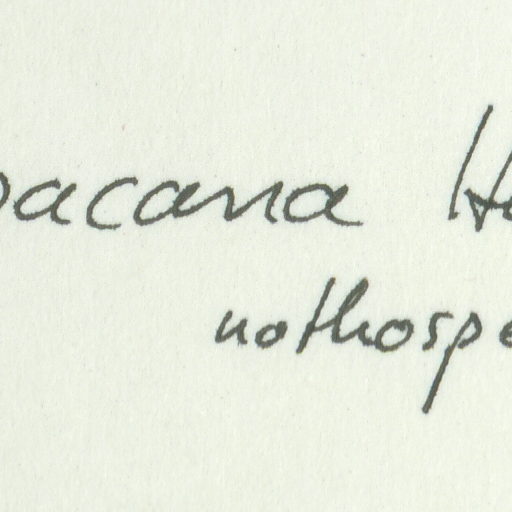 pacana H
nothospe